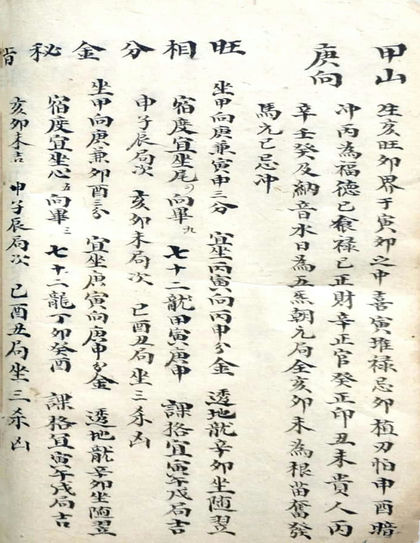 甲山
庚向
生亥旺卯界于寅卯之中喜寅堆禄忌卯植刃怕申酉暗
冲丙為福德巳食禄己正財辛正官癸正印丑未貴人丙
辛壬癸及納音水日為五炁朝元局全亥卯未為根苗奮發
馬元巳忌冲
旺相分金秘旨
坐甲向庚兼寅申三分 宜坐丙寅向丙申分金 透地龍辛卯坐随翌
宿度宜坐尾八向畢九 七十二龍甲寅庚申 課格宜寅午戌局吉
申子辰局次 亥卯未局次 巳酉丑局坐三杀凶
坐甲向庚兼卯酉三分 宜坐庚寅向庚申分金 透地龍辛卯坐随翌
宿度宜坐心五向畢三 七十二龍丁卯癸酉 課格宜寅午戌局吉
亥卯未吉 申子辰局次 巳酉丑局坐三杀凶